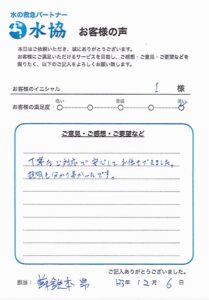 水の救急パートナー
水協 お客様の声
本日はご依頼いただき、誠にありがとうございます。
お客様にご満足いただけるサービスを目指し、ご感想・ご意見・ご要望などを
賜りたく、以下のご記入をよろしくお願い致します。
お客様のイニシャル I 様
お客様の満足度 低い 普通 高い
ご意見・ご感想・ご要望など
丁寧な対応で安心してお任せできました。
説明も分かり易かったです。
ご記入ありがとうございました。
担当: 12月6日